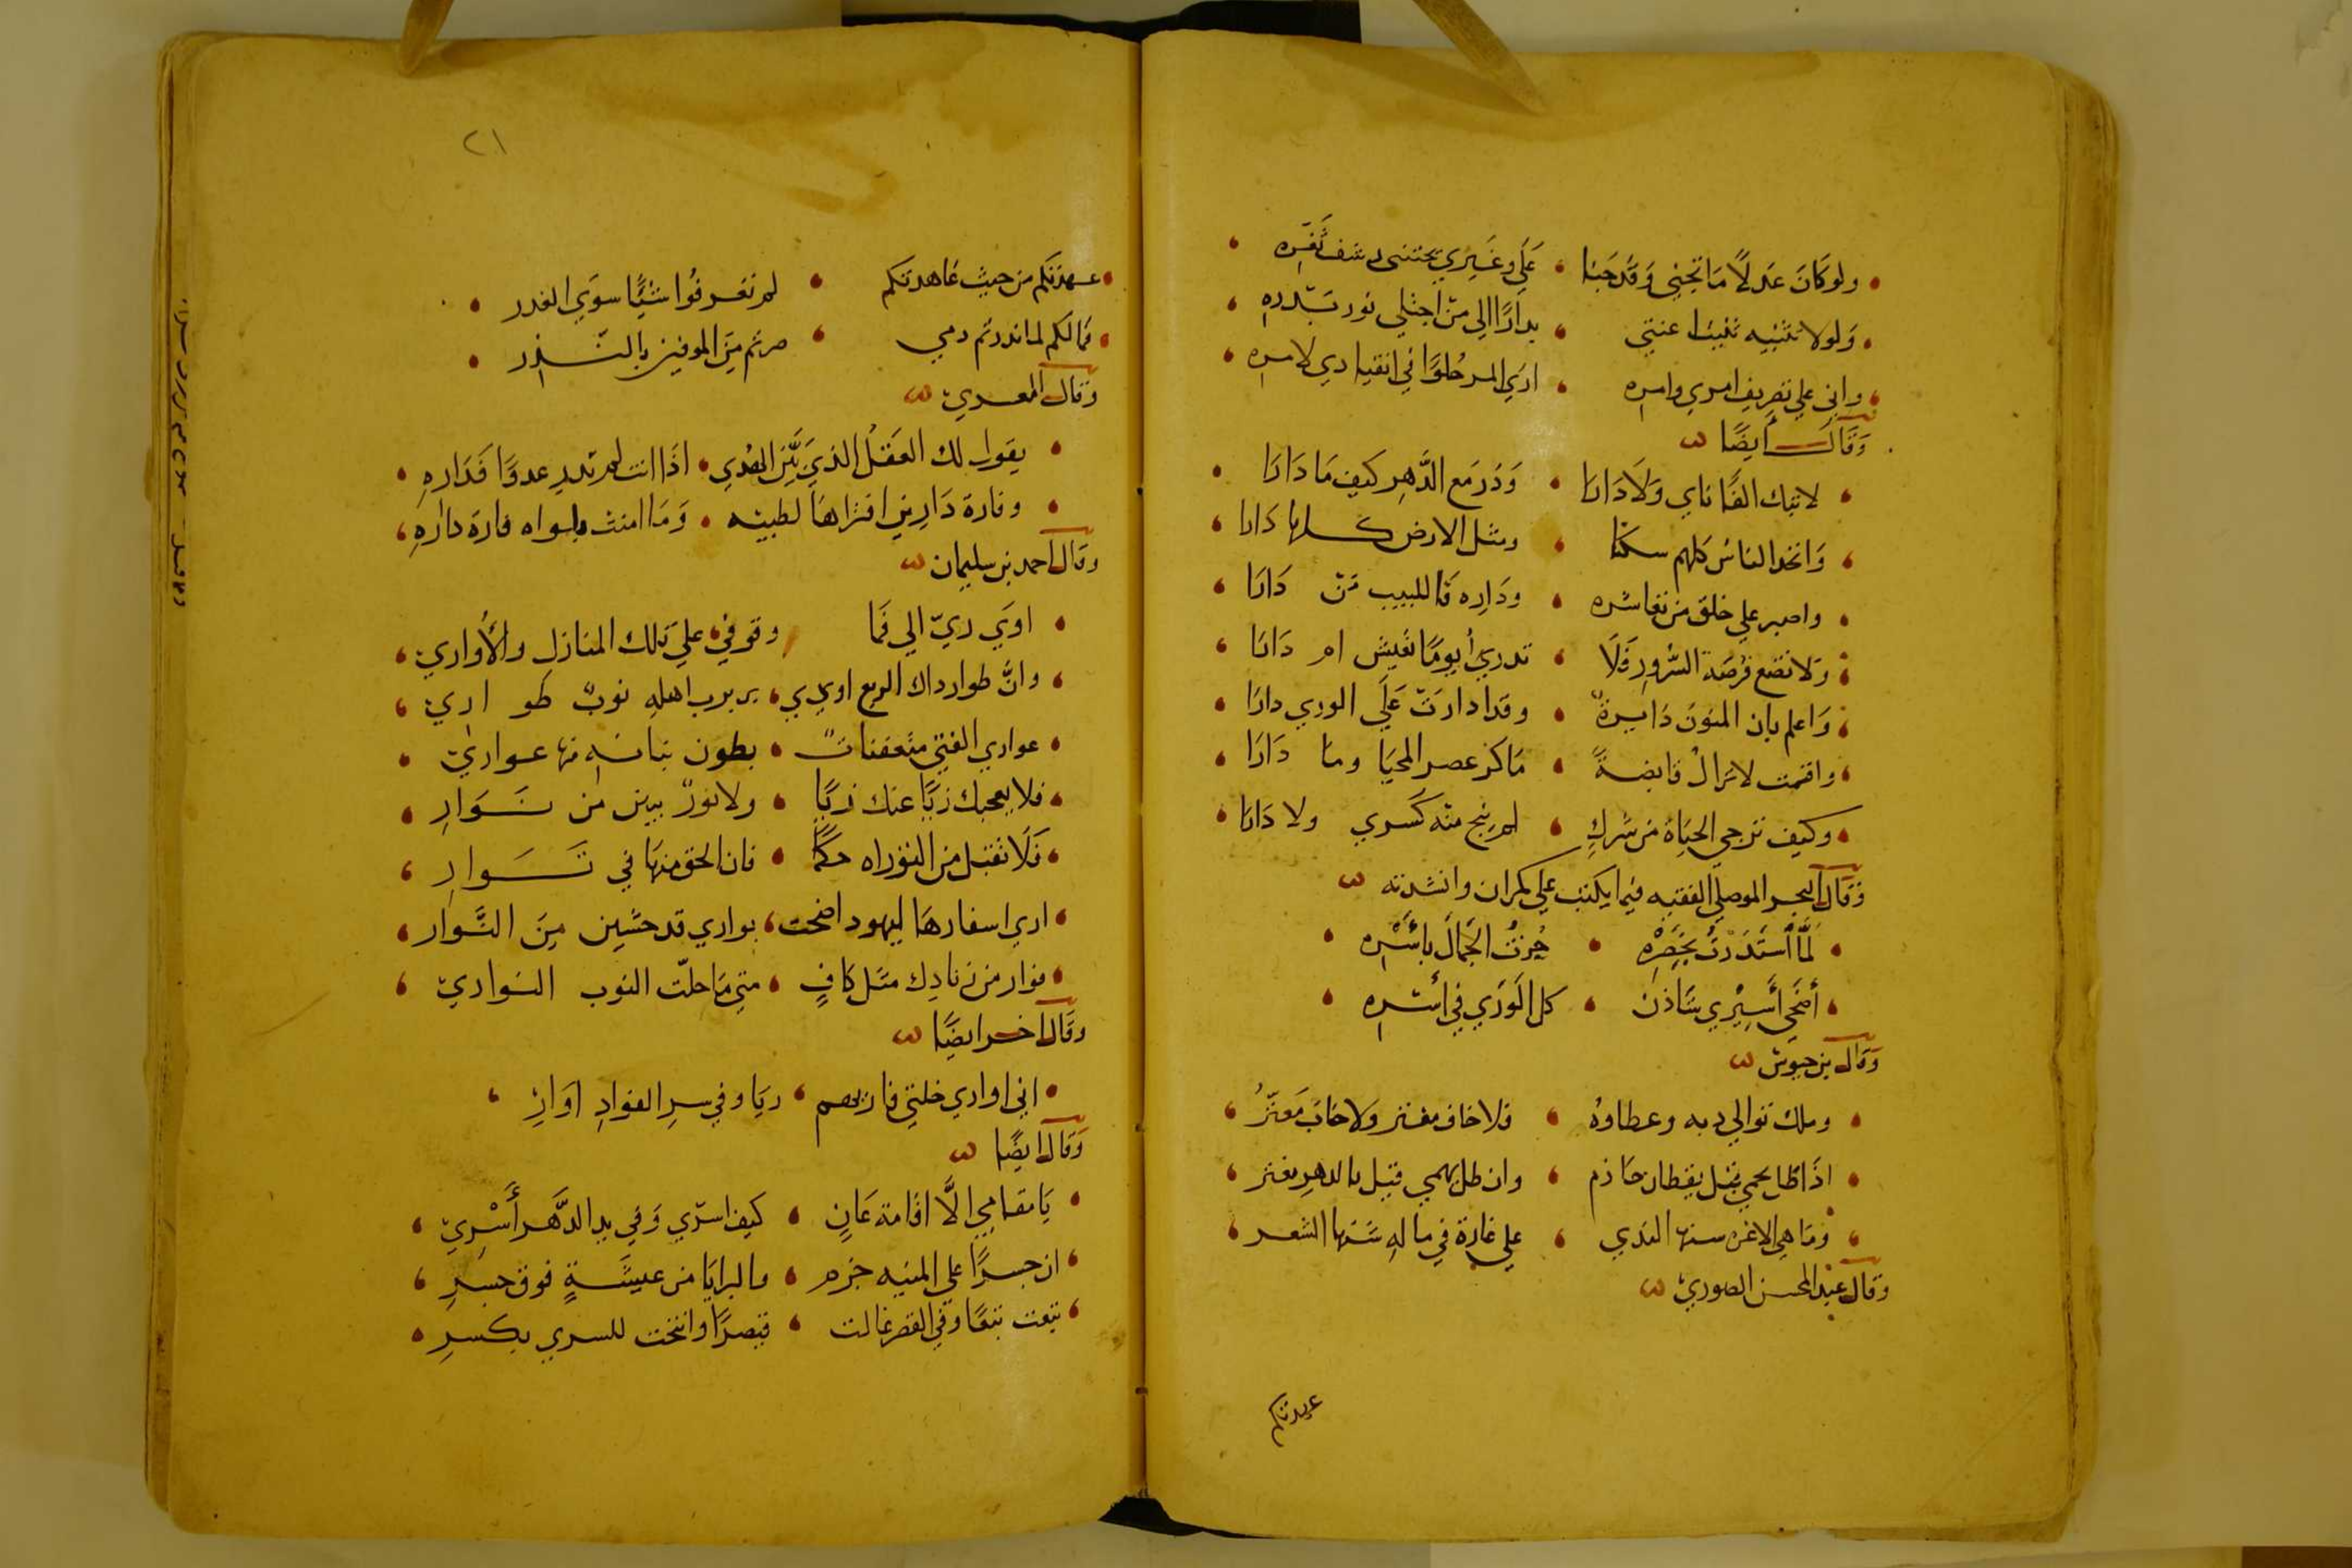 ولو كان عدلا ما تجنى وقد جنا علي وغيري يجتنى رشف ثغره
ولولا تثنيه ثنيت اعنتي بدارا الى من اجتلي نور بدره
واني على تصريف امري وامره ارى المر حلوا في انقيادي لامره
وقال أيضا
لا تبك الفا ناى ولا دارا ودر مع الدهر كيف ما دارا
واتخذ الناس كلهم سكنا ومثل الارض كلها دارا
واصبر على خلق من تعاشره وداره فاللبيب من دارا
ولا تضع فرصة السرور فلا تدري أيوما تعيش ام دارا
واعلم بان المنون دايرة وقد ادارت على الورى دارا
واقسمت لا تزال قابضة ما كر عصر المحيا وما دارا
وكيف ترجى الحياة من شرك لم ينج منه كسرى ولا دارا
وقال البحر الموصلي الفقيه فيما يكتب على كمران وانشدته
لما أستدرت بخصره حزت الجمال بأسره
أضحى أسيري شاذن كل الورى في أسره
وقال بن حيوش
وملك توالى دبه وعطاوه فلا خاف مغتر ولا خاب معتر
اذا ظل يحمي قيل يقظان حازم وان ظل يهمي قيل بالدهر يغتر
وما هي الا غره سنها الندى على غارة في ماله شنها الشعر
وقال عبد المحسن الصوري
عهدتكم
٢١
عهدتكم من حيث عاهدتكم لم تعرفوا شيئا سوى الغدر
فما لكم لما نذرتم دمي صرتم من الموفين بالنذر
وقال المعري
يقول لك العقل الذي بين الهدى اذا انت لم تدر عدوا فداره
وفارة دارين افتراها لطيبه وما امنت بلواه فارة داره
وقال احمد بن سليمان
اوي ربي الي فما وقوفي على تلك المنازل والأواري
وان طوار داك الربع اودي بربرب اهله نوب طواري
عواري الفتى متعفنات بطون بناته منها عواري
فلا يعجبك زيا عنك زيا ولا نور يبين من نوار
فلا تقبل من التوراه حكما فان الحق منها في توار
ارى اسفارها ليهود اضحت بواري قد حشين من النوار
نوار من زنادك مثل كاف متى ما حلت النوب النواري
وقال اخر ايضا
اني اواري خلتي فاريهم ريا وفي سر الفواد اوار
وقال ايضا
يا مقامي الا اقامة عان كيف اسري وفي يد الدهر أسري
ان جسرا على المنيه حزم والبرايا من عيشة فوق جسر
تبعت تبعا وفي القصر غالت قيصرا وانتخت للسري بكسر